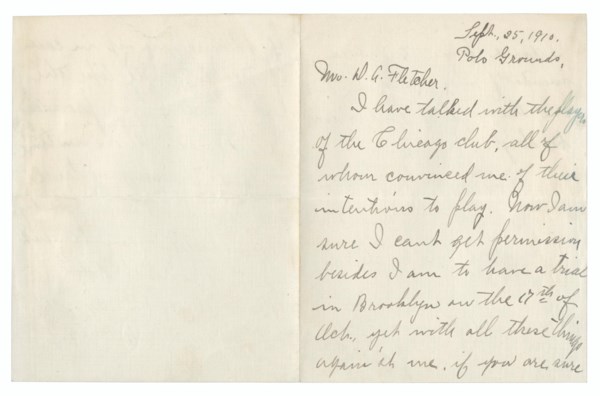 Sept. 25, 1910.
Polo Grounds,
Mr. D. A. Fletcher.
I have talked with the players
of the Chicago club, all of
whom convinced me of their
intentions to play. Now I am
sure I cant get permission
besides I am to have a trial
in Brooklyn on the 17th of
Oct., yet with all these things
again'st me, if you are sure